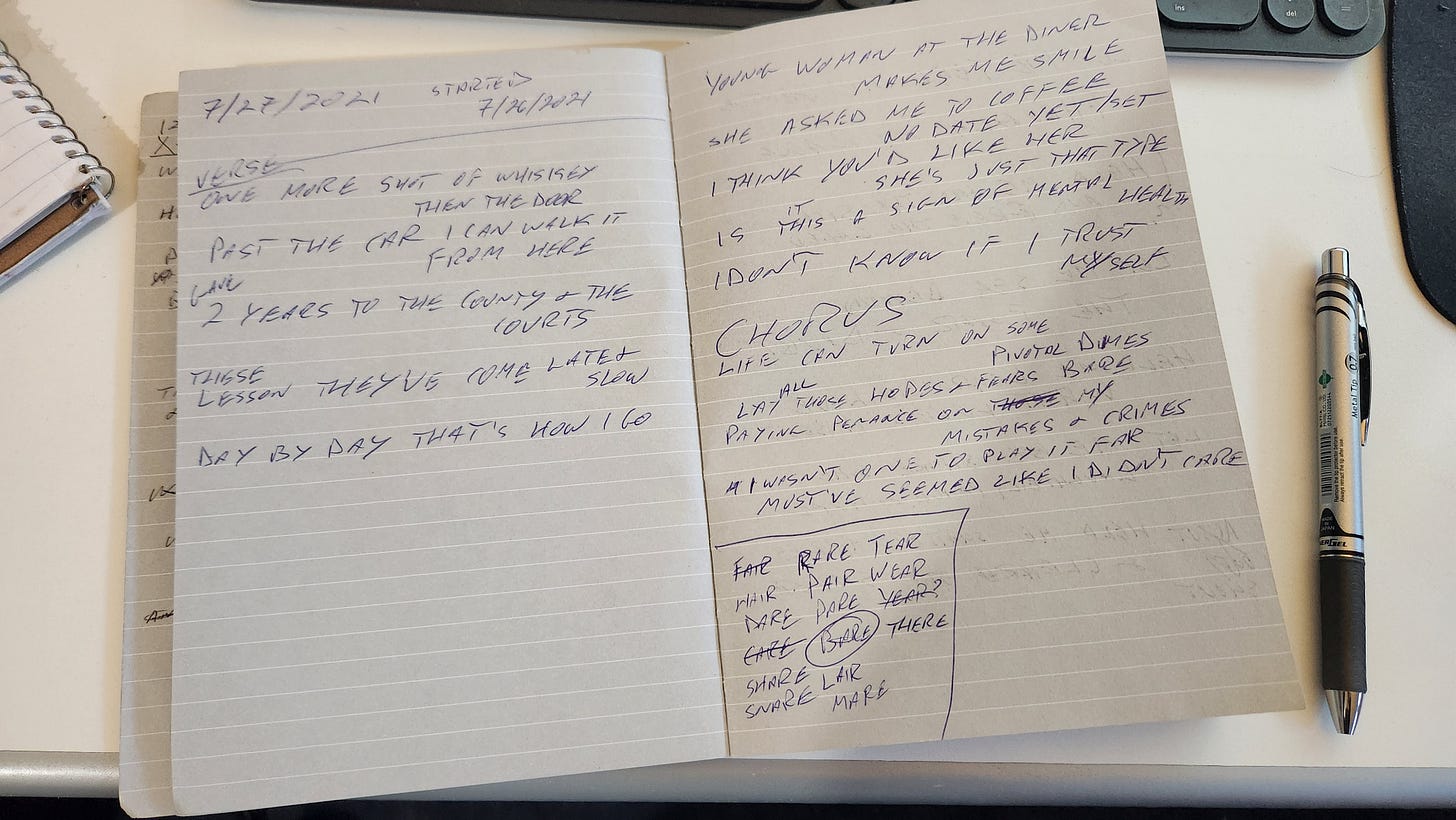 7/27/2021 STARTED
7/26/2021
VERSE
ONE MORE SHOT OF WHISKEY
THEN THE DOOR
PAST THE CAR I CAN WALK IT
FROM HERE
GAVE
2 YEARS TO THE COUNTY & THE
COURTS
THESE
LESSON THEY'VE COME LATE &
SLOW
DAY BY DAY THAT'S HOW I GO
YOUNG WOMAN AT THE DINER
MAKES ME SMILE
SHE ASKED ME TO COFFEE
NO DATE YET/SET
I THINK YOU'D LIKE HER
SHE'S JUST THAT TYPE
IT
IS THIS A SIGN OF MENTAL
HEALTH
I DON'T KNOW IF I TRUST
MYSELF
CHORUS
LIFE CAN TURN ON SOME
PIVOTAL DIMES
ALL
LAY THOSE HOPES & FEARS BARE
PAYING PENANCE ON THOSE MY
MISTAKES & CRIMES
I WASN'T ONE TO PLAY IT FAR
MUST'VE SEEMED LIKE I DIDN'T CARE
FAIR RARE TEAR
HAIR PAIR WEAR
DARE PARE YEAR?
CARE BARE THERE
SHARE LAIR
SNARE MARE
ins
del
Metal Tip 0.7
MADE IN JAPAN
ERGEL